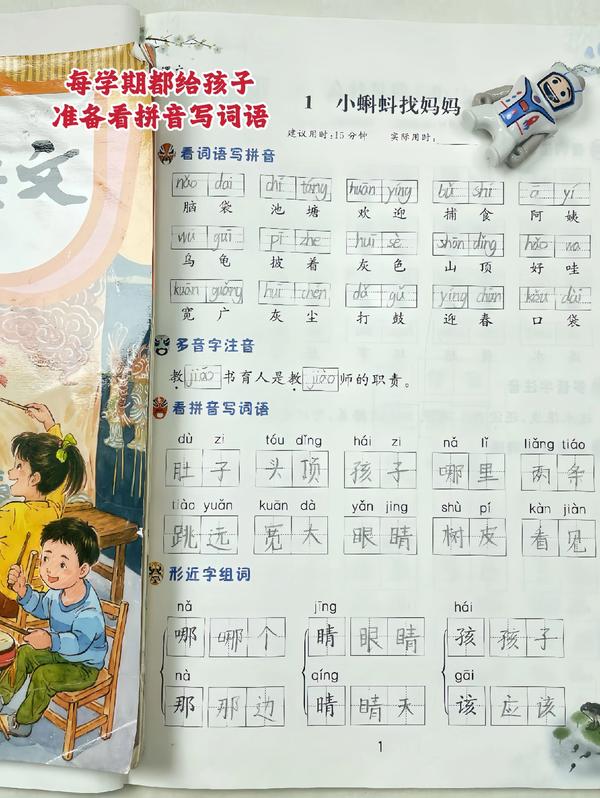 每学期都给孩子
准备看拼音写词语
文
1 小蝌蚪找妈妈
建议用时:15分钟 实际用时:
看词语写拼音
nǎo dai chī táng huān yíng bǔ shí ā yí
脑袋 池塘 欢迎 捕食 阿姨
wū guī pī zhe huī sè shān dǐng hǎo wa
乌龟 披着 灰色 山顶 好哇
kuān guǎng huī chén dǎ gǔ yíng chūn kǒu dài
宽广 灰尘 打鼓 迎春 口袋
多音字注音
教jiāo书育人是教jiào师的职责。
看拼音写词语
dù zi tóu dǐng hái zi nǎ lǐ liǎng tiáo
肚子 头顶 孩子 哪里 两条
tiào yuǎn kuān dà yǎn jing shù pí kàn jiàn
跳远 宽大 眼睛 树皮 看见
形近字组词
nǎ jīng hái
哪 哪个 睛 眼睛 孩 孩子
nà qíng gāi
那 那边 晴 晴天 该 应该
1